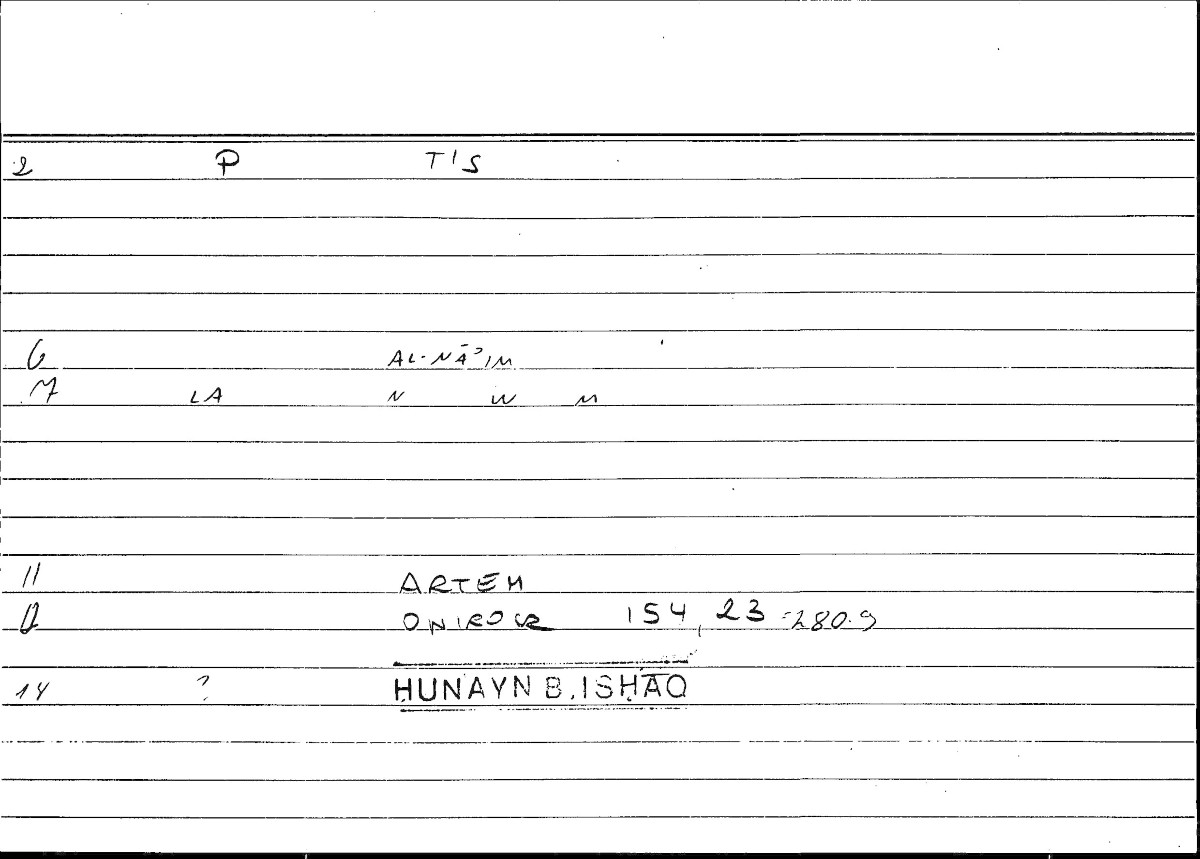 2 P T'S
6 AL-NĀʾIM
7 LA N W M
11 ARTEM
12 ONIROCR 154,23 = 280.9
14 ? ḤUNAYN B. ISḤĀQ